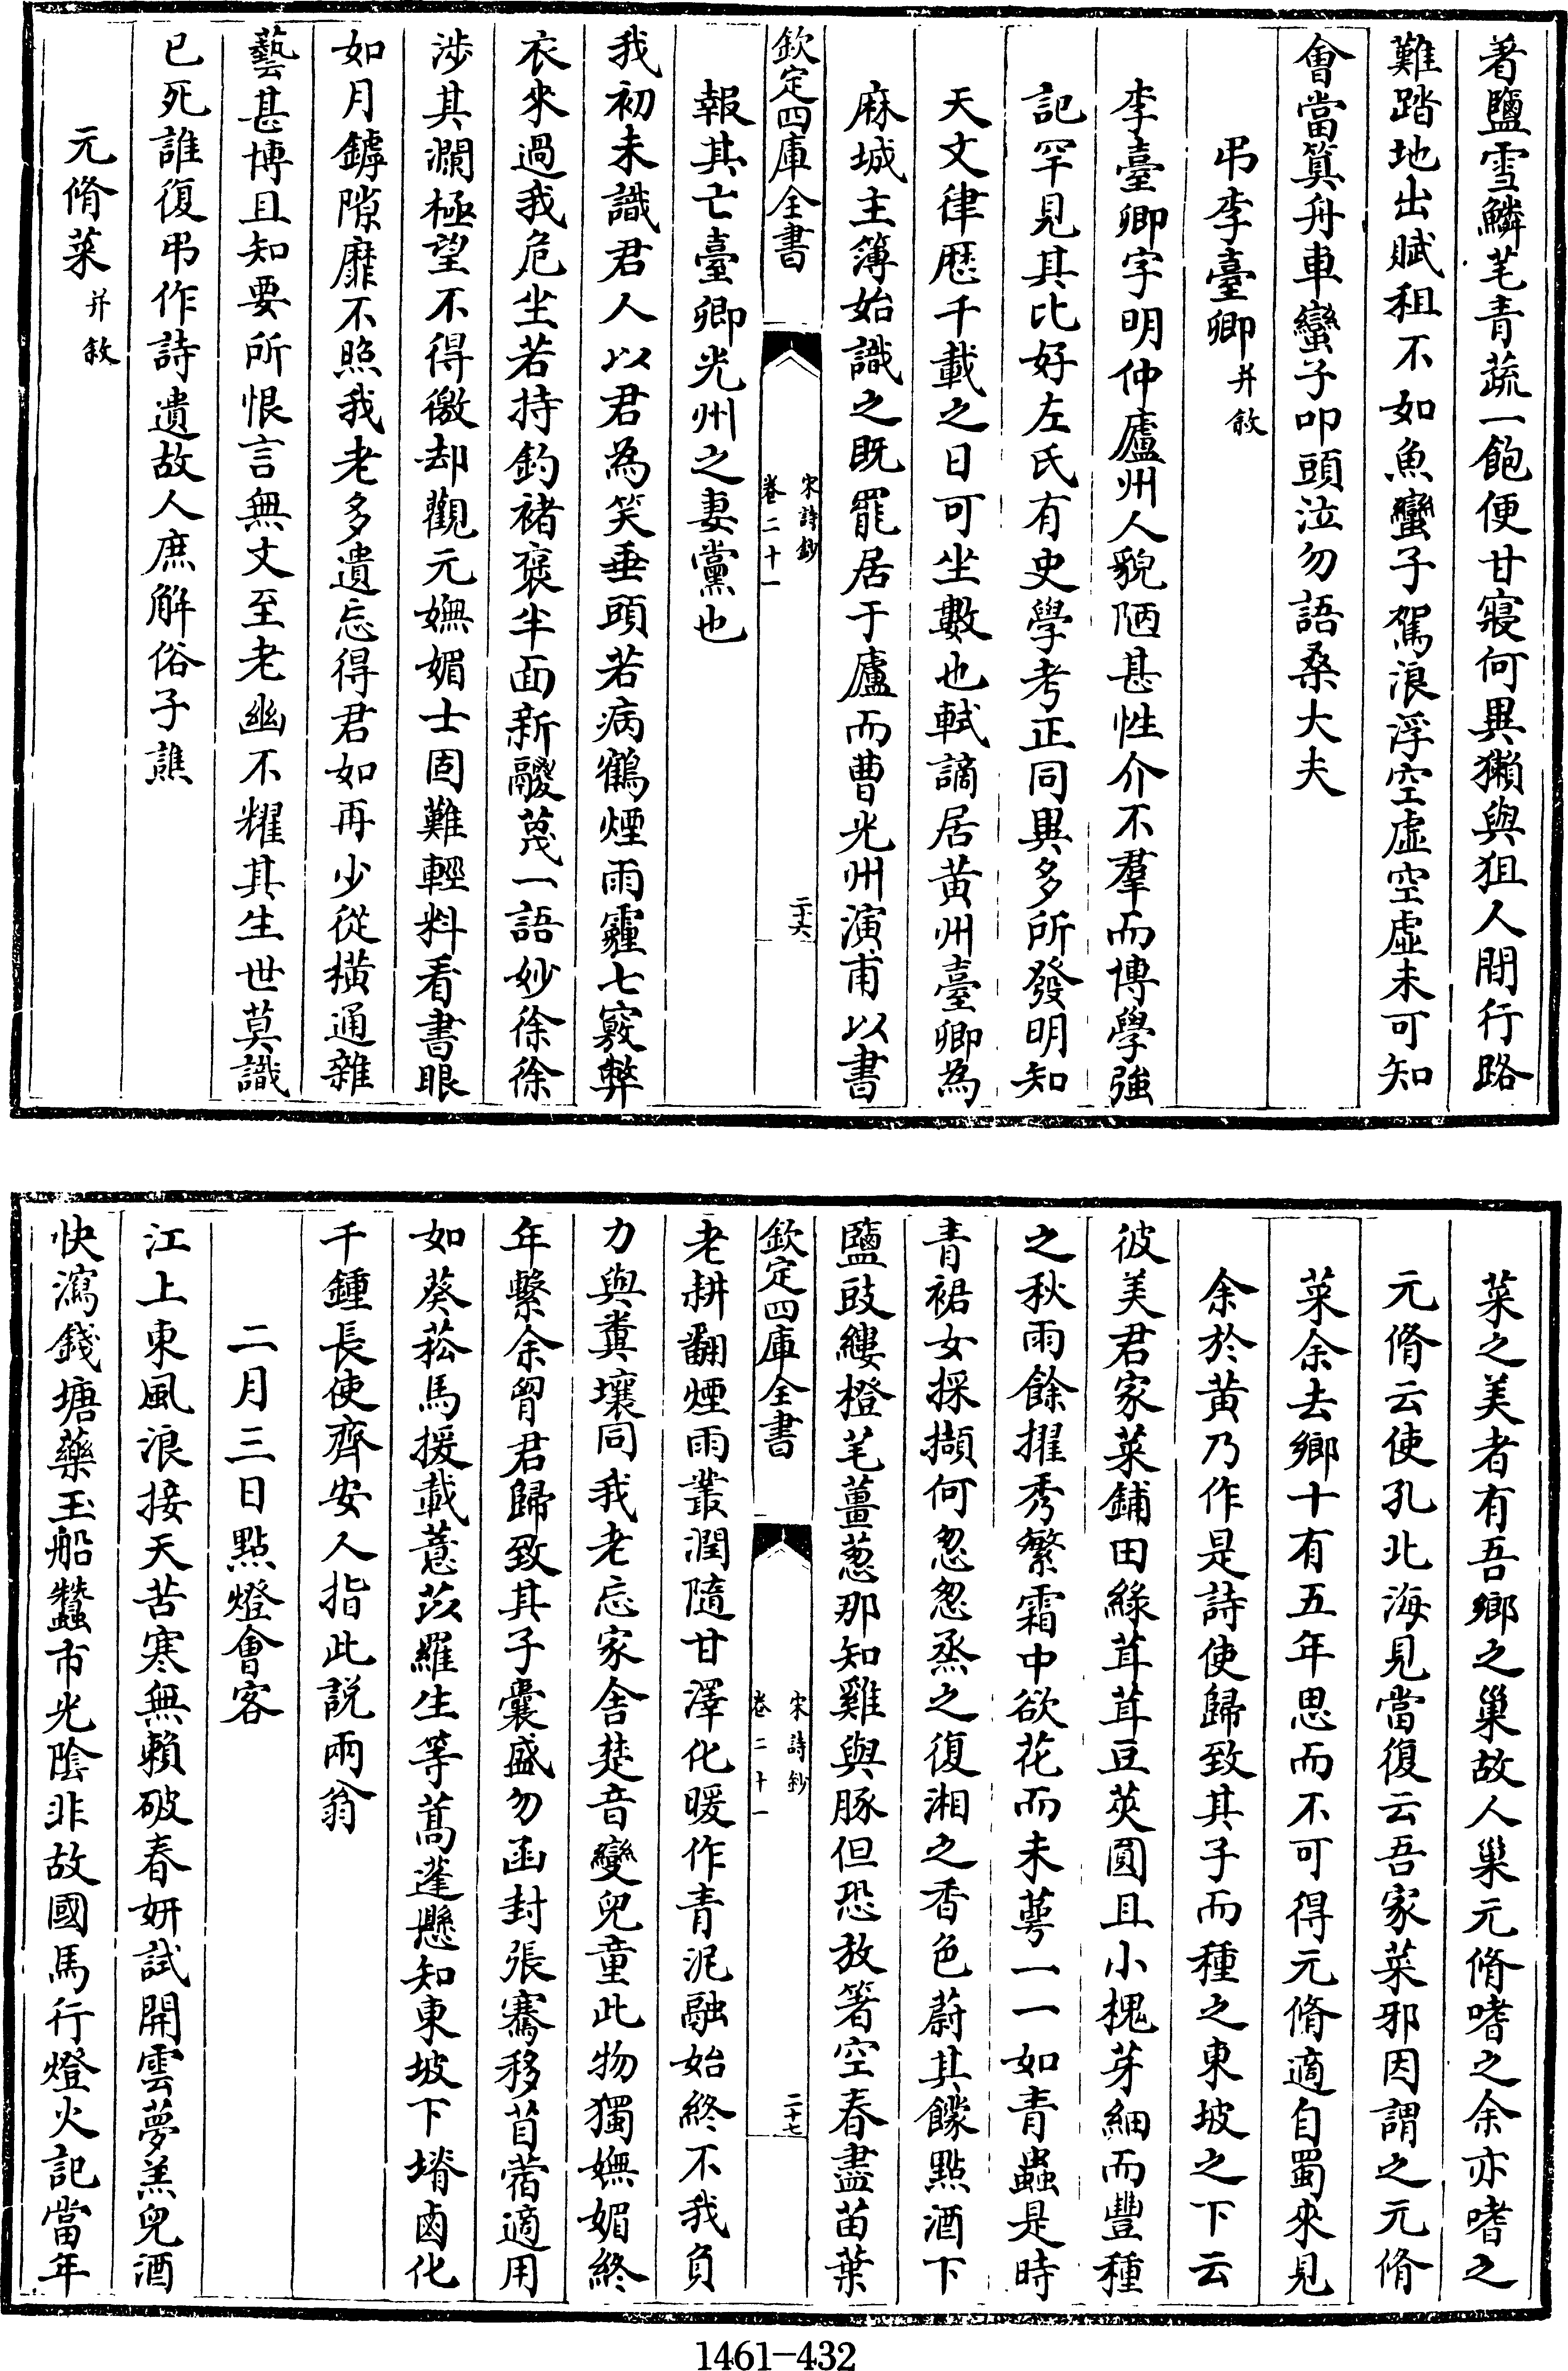 著鹽雪鱗芼青蔬一飽便甘寢何異獺與狙人間行路
難踏地出賦租不如魚蠻子駕浪浮空虛空虛未可知
會當算舟車蠻子叩頭泣勿語桑大夫
弔李臺卿并敘
李臺卿字明仲廬州人貌陋甚性介不羣而博學強
記罕見其比好左氏有史學考正同異多所發明知
天文律厯千載之日可坐數也軾謫居黄州臺卿為
麻城主簿始識之既罷居于廬而曹光州演甫以書
報其亡臺卿光州之妻黨也
欽定四庫全書
宋詩鈔
卷二十一
二十六
我初未識君人以君為笑垂頭若病鶴煙雨霾七竅弊
衣來過我危坐若持釣褚裒半面新鬷蔑一語妙徐徐
涉其瀾極望不得徼却觀元嫵媚士固難輕料看書眼
如月罅隙靡不照我老多遺忘得君如再少從橫通雜
藝甚博且知要所恨言無文至老幽不耀其生世莫識
已死誰復弔作詩遺故人庶解俗子譙
元脩菜并敘
菜之美者有吾鄉之巢故人巢元脩嗜之余亦嗜之
元脩云使孔北海見當復云吾家菜邪因謂之元脩
菜余去鄉十有五年思而不可得元脩適自蜀來見
余於黄乃作是詩使歸致其子而種之東坡之下云
彼美君家菜鋪田綠茸茸豆莢圓且小槐芽細而豐種
之秋雨餘擢秀繁霜中欲花而未萼一一如青蟲是時
青裙女採擷何怱怱烝之復湘之香色蔚其饛點酒下
鹽豉縷橙芼薑葱那知雞與豚但恐放箸空春盡苗葉
欽定四庫全書
宋詩鈔
卷二十一
二十七
老耕翻煙雨叢潤隨甘澤化暖作青泥融始終不我負
力與糞壤同我老忘家舍楚音變兒童此物獨嫵媚終
年繫余胷君歸致其子囊盛勿函封張騫移苜蓿適用
如葵菘馬援載薏苡羅生等蒿蓬懸知東坡下塉鹵化
千鍾長使齊安人指此說兩翁
二月三日點燈會客
江上東風浪接天苦寒無賴破春妍試開雲夢羔兒酒
快瀉錢塘藥玉船蠶市光陰非故國馬行燈火記當年
1461-432